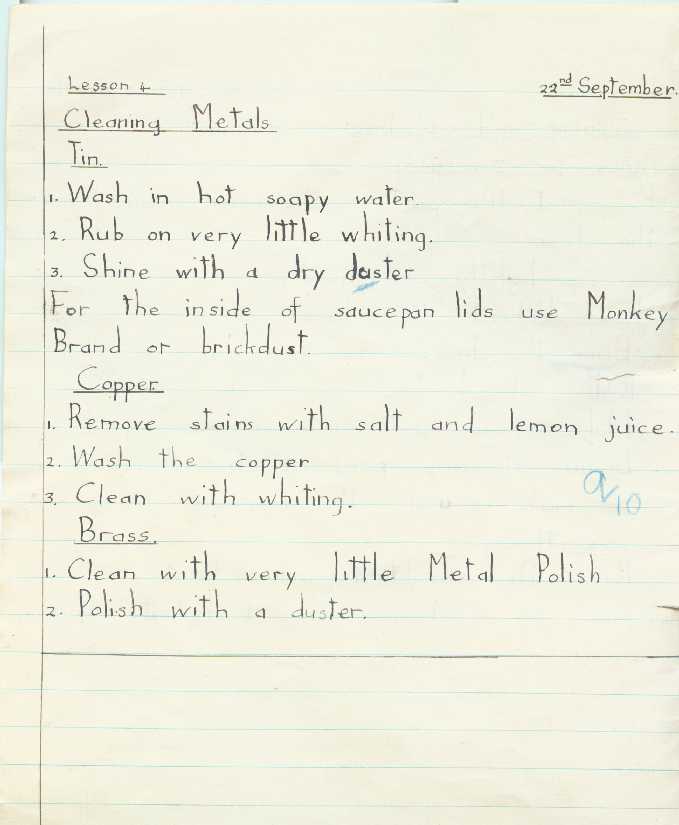 Lesson 4 22nd September.
Cleaning Metals
Tin.
1. Wash in hot soapy water.
2. Rub on very little whiting.
3. Shine with a dry duster
For the inside of saucepan lids use Monkey
Brand or brickdust.
Copper.
1. Remove stains with salt and lemon juice.
2. Wash the copper
3. Clean with whiting.
9/10
Brass.
1. Clean with very little Metal Polish
2. Polish with a duster.